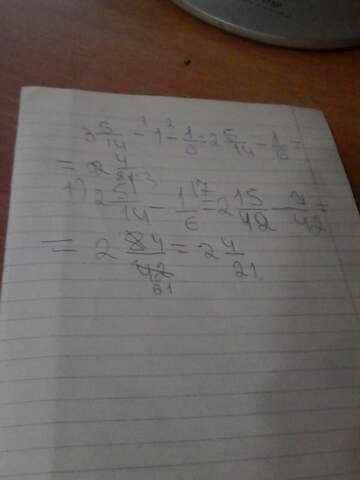 3 5/14 - 1 - 1/6 = 2 5/14 - 1/6 =
= 2 4/21
1) 2 5/14 - 1/6 = 2 15/42 - 7/42 =
= 2 8/42 = 2 4/21